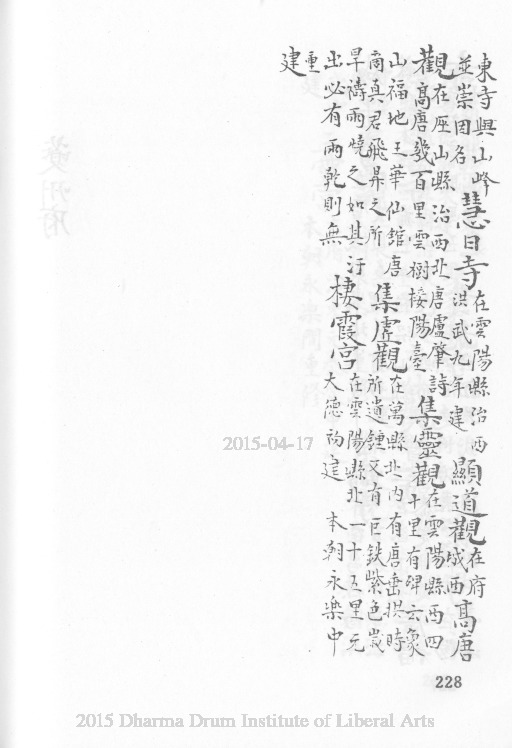 東寺與山峰
並崇因名
慧日寺
在雲陽縣治西
洪武九年建
顯道觀
在府
城西
高唐
觀
在巫山縣治西北唐盧肇詩
高唐幾百里雲樹接陽臺
集靈觀
在雲陽縣西四
十里有碑云象
山福地玉華仙館唐
商真君飛昇之所
集虛觀
在萬縣北內有唐垂拱時
所遺鐘又有巨鉄紫色歲
旱禱雨燒之如其汗
出必有雨乾則無
棲霞宮
在雲陽縣北一十五里元
大德初建 本朝永樂中
重
建
228
2015-04-17
2015 Dharma Drum Institute of Liberal Arts